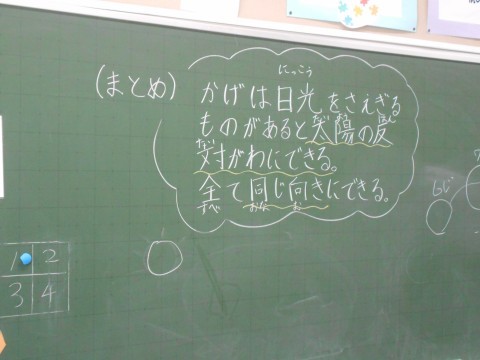 (まとめ)
にっこう
かげは日光をさえぎる
ものがあると太陽の反
対がわにできる。
全て同じ向きにできる。
すべ おな む
1 2
3 4